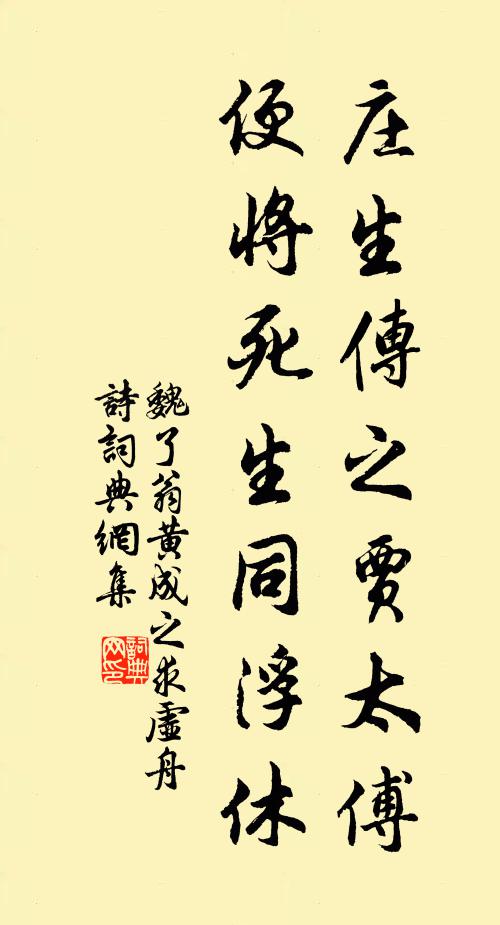 庄生傳之賈太傅
便將死生同浮休
魏了翁黄成之求虛舟
詩詞典網集
詞典网印